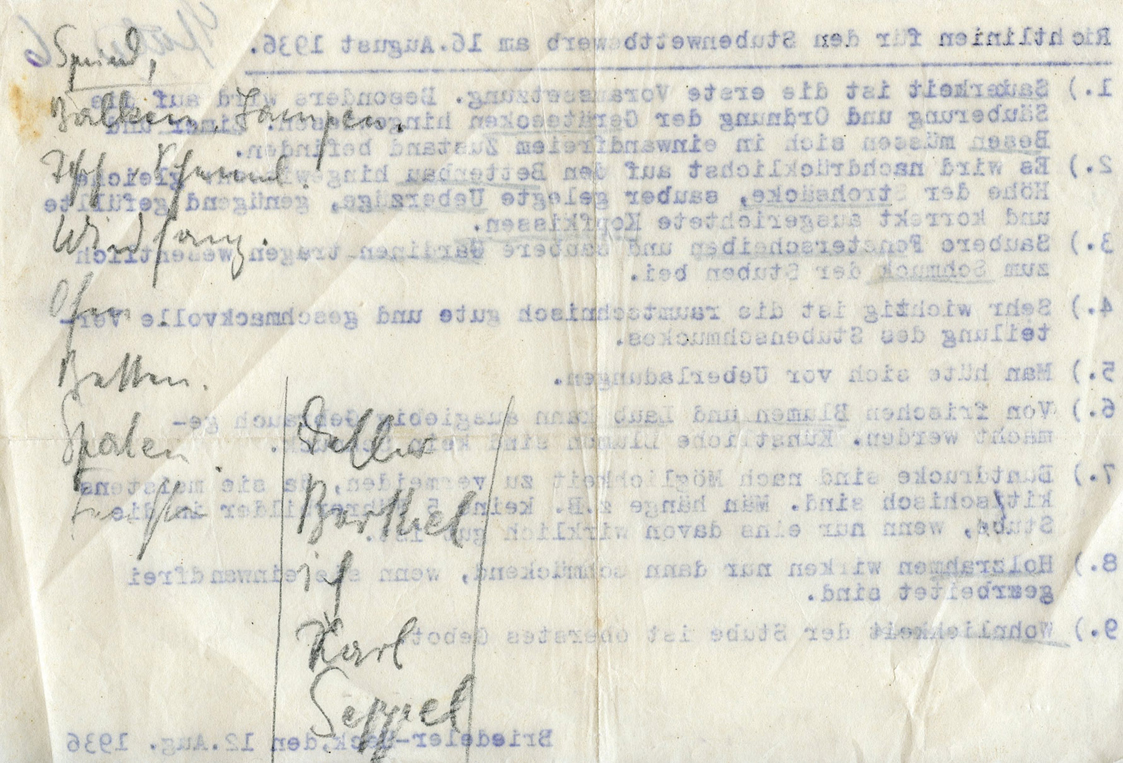 Spind,
Balken. Lampen.
Windfang.
Ofen
Betten.
Spaten.
Barthel
ich
Karl
Seppel
Richtlinien für den Stubenwettbewerb am 16.August 1936.
1.) Sauberkeit ist die erste Voraussetzung. Besonders wird auf die
Säuberung und Ordnung der Geräteecken hingewiesen. Eimer und
Besen müssen sich in einwandfreiem Zustand befinden.
2.) Es wird nachdrücklichst auf den Bettenbau hingewiesen, gleiche
Höhe der Strohsäcke, sauber gelegte Ueberzüge, genügend gefüllte
und korrekt ausgerichtete Kopfkissen.
3.) Saubere Fensterscheiben und saubere Gardinen tragen wesentlich
zum Schmuck der Stuben bei.
4.) Sehr wichtig ist die raumtechnisch gute und geschmackvolle Ver-
teilung des Stubenschmuckes.
5.) Man hüte sich vor Ueberladungen.
6.) Von frischen Blumen und Laub kann ausgiebig Gebrauch ge-
macht werden. Künstliche Blumen sind kein Schmuck.
7.) Buntdrucke sind nach Möglichkeit zu vermeiden, da sie meistens
kitschisch sind. Man hänge z.B. keine 5 Führerbilder in die
Stube, wenn nur eins davon wirklich gut ist.
8.) Holzrahmen wirken nur dann schmückend, wenn sie einwandfrei
gearbeitet sind.
9.) Wohnlichkeit der Stube ist oberstes Gebot.
Briedeler-Heck, den 12.Aug. 1936